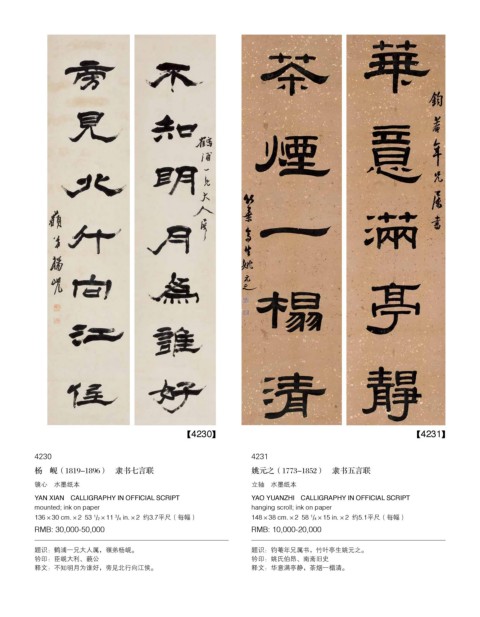 不知明月為誰好
鶴浦一兄大人屬
旁見北斗向江低
藐翁楊峴
華意滿亭靜
鈞菴年兄屬書
茶煙一榻清
竹葉亭生姚元之
【4230】
【4231】
4230
杨 岘（1819-1896） 隶书七言联
镜心 水墨纸本
YAN XIAN CALLIGRAPHY IN OFFICIAL SCRIPT
mounted; ink on paper
136×30 cm.×2 53 1/2×11 3/4 in.×2 约3.7平尺（每幅）
RMB: 30,000-50,000
题识：鹤浦一元大人属，藐弟杨岘。
钤印：臣岘大利、藐公
释文：不知明月为谁好，旁见北行向江侯。
4231
姚元之（1773-1852） 隶书五言联
立轴 水墨纸本
YAO YUANZHI CALLIGRAPHY IN OFFICIAL SCRIPT
hanging scroll; ink on paper
148×38 cm.×2 58 1/4×15 in.×2 约5.1平尺（每幅）
RMB: 10,000-20,000
题识：钧菴年兄属书，竹叶亭生姚元之。
钤印：姚氏伯昂、南斋旧史
释文：华意满亭静，茶烟一榻清。